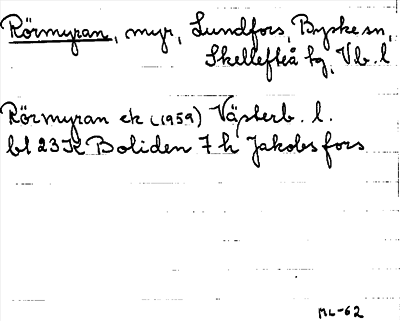 Rörmyran, myr, Lundfors, Byske sn,
Skellefteå tg, Vb. l
Rörmyran ek (1959) Västerb. l.
bl 23K Boliden 7 h Jakobsfors
ML-62